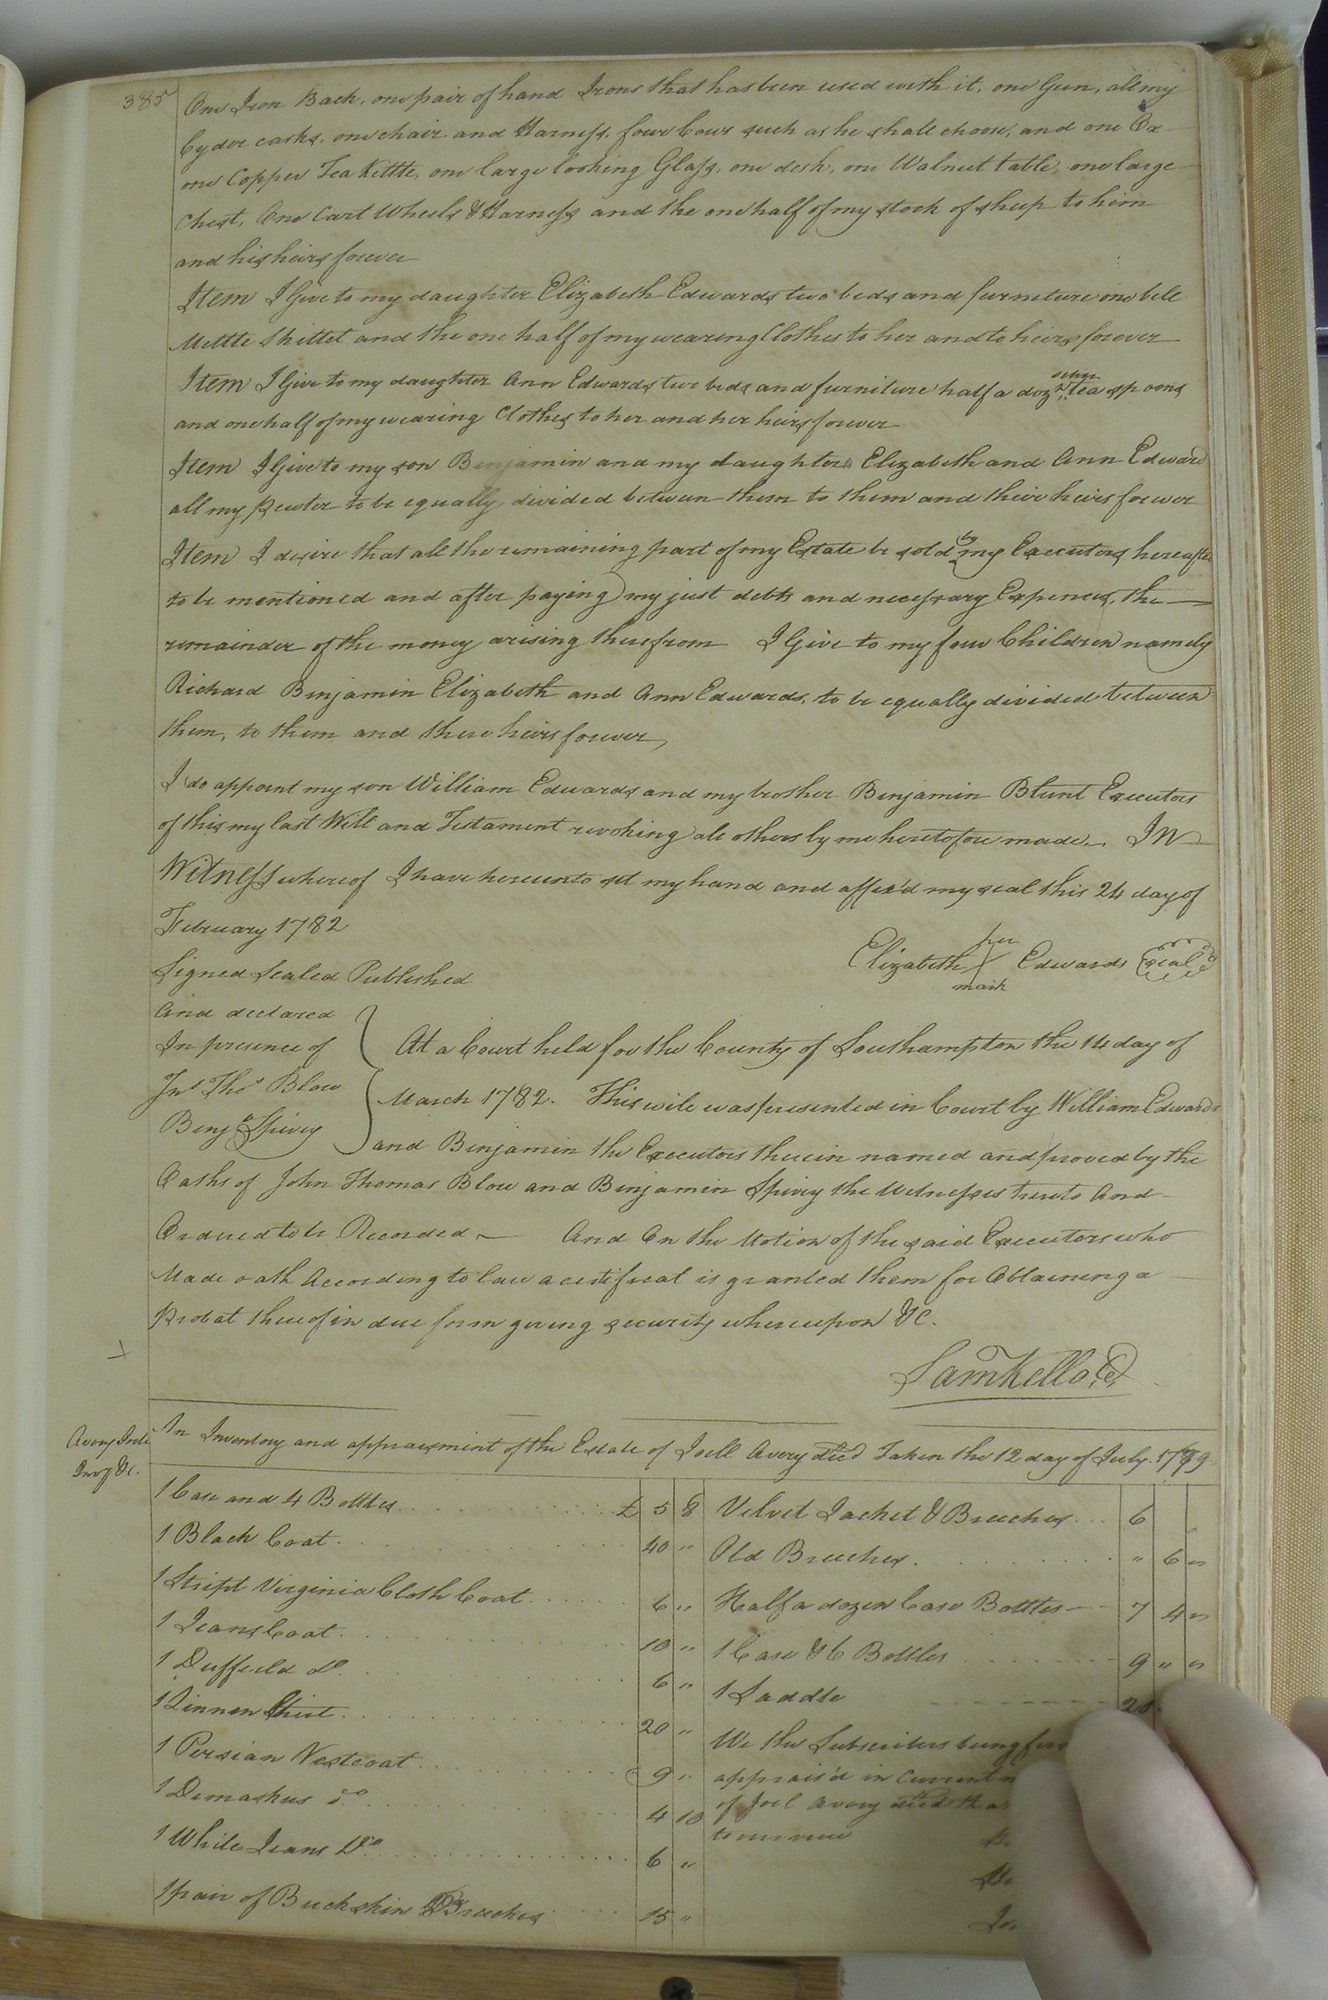 385
One Iron Back, one pair of hand Irons that has been used with it, one Gun, all my
Cyder casks, one chair and Harness, four Cows such as he shall choose, and one Ox
one Copper Tea Kettle, one large looking Glass, one desk, one Walnut table, one large
Chest, One Cart Wheels & Harness and the one half of my stock of sheep to him
and his heirs forever
Item I Give to my daughter Elizabeth Edwards two beds and furniture one bell
Mettle Skittet and the one half of my wearing Clothes to her and to heirs forever
Item I Give to my daughter Ann Edwards two beds and furniture half a doz tea spoons
and one half of my wearing Clothes to her and her heirs forever
Item I Give to my son Benjamin and my daughters Elizabeth and Ann Edward
all my Pewter to be equally divided between them to them and their heirs forever
Item I desire that all the remaining part of my Estate be sold my Executors hereafter
to be mentioned and after paying my just debts and necessary Expences, the
remainder of the money arising therefrom I Give to my four Children namely
Richard Benjamin Elizabeth and Ann Edwards, to be equally divided between
them, to them and there heirs forever,
I do appoint my son William Edwards and my brother Benjamin Blunt Executors
of this my last Will and Testament revoking all others by me heretofore made. IN
Witness whereof I have hereunto set my hand and affix'd my seal this 24 day of
February 1782
her
Elizabeth X Edwards (seal)
mark
Signed Sealed Published
and declared
In presence of
Jno Thos Blow
Benj Spivey
At a Court held for the County of Southampton the 14 day of
March 1782. This will was presented in Court by William Edwards
and Benjamin the Executors therein named and proved by the
Oaths of John Thomas Blow and Benjamin Spivey the Witnesses hereto And
Ordered to be Recorded And On the Motion of the said Executors who
Made oath According to law a certificat is granted them for Obtaining a
Probat thereof in due form giving security whereupon &C.
Saml Kello CC
Avery Joel
Invy &C.
An Inventory and appraisment of the Estate of Joell Avery decd Taken the 12 day of July. 1779
1 Case and 4 Bottles £ 5 8
1 Black Coat 40 "
1 Stript Virginia Cloth Coat 6 "
1 Jeans Coat 10 "
1 Duffield do 6 "
1 Linnen Shirt 20 "
1 Persian Vestcoat 9 "
1 Demaskus do 4 10
1 White Jeans Do 6 "
1 pair of Buckskin Breeches 15 "
Velvet Jacket & Breeches 6
Old Breeches " 6 "
Half a dozen Case Bottles 7 4 "
1 Case & 6 Bottles 9 " "
1 Saddle 20
We the Subscribers being
apprais'd in Current
of Joel Avery decd
to us